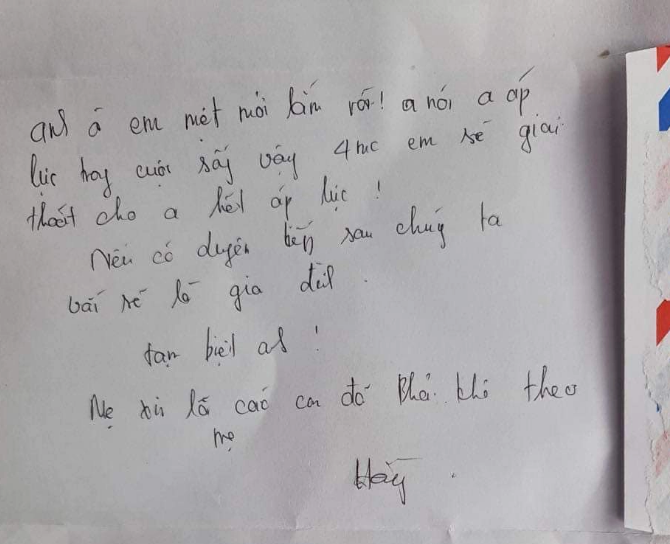 anh à em mệt mỏi lắm rồi! a nói a áp
lực hay cuộc sống vậy 4 mẹ em sẽ giải
thoát cho a hết áp lực!
Nếu có duyên kiếp sau chúng ta
vẫn sẽ là gia đình.
tạm biệt anh!
Mẹ xin lỗi các con đã phải khổ theo
mẹ